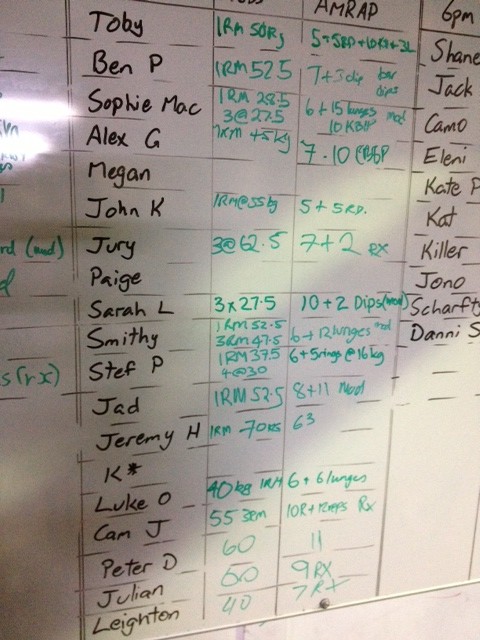 AMRAP 6pm
Toby 1RM 50kg 5+5RD+10KB+3L Shane
Ben P 1RM 52.5 7+3dip bar dips Jack
Sophie Mac 1RM 28.5 3@27.5 6+15 lunges mod 10KBP Camo
Alex G 1RM 45kg 7.10 Eleni
Megan Kate P
John K 1RM@55kg 5+5RD. Kat
Jury 3@62.5 7+2 RX Killer
(mod)
Paige Jono
Sarah L 3x27.5 10+2 Dips(mod) Scharfty
Smithy 1RM 52.5 3RM 47.5 6+12lunges mod Danni S
Stef P 1RM 37.5 4@30 6+5rings@16kg
s(rx)
Jad 1RM 52.5 8+11 Mod
Jeremy H 1RM 70KG 63
K*
Luke O 40kg 1RM 6+6 lunges
Cam J 55 3RM 10R+12reps Rx
Peter D 60 11
Julian 50 9RX
Leighton 40 7RX